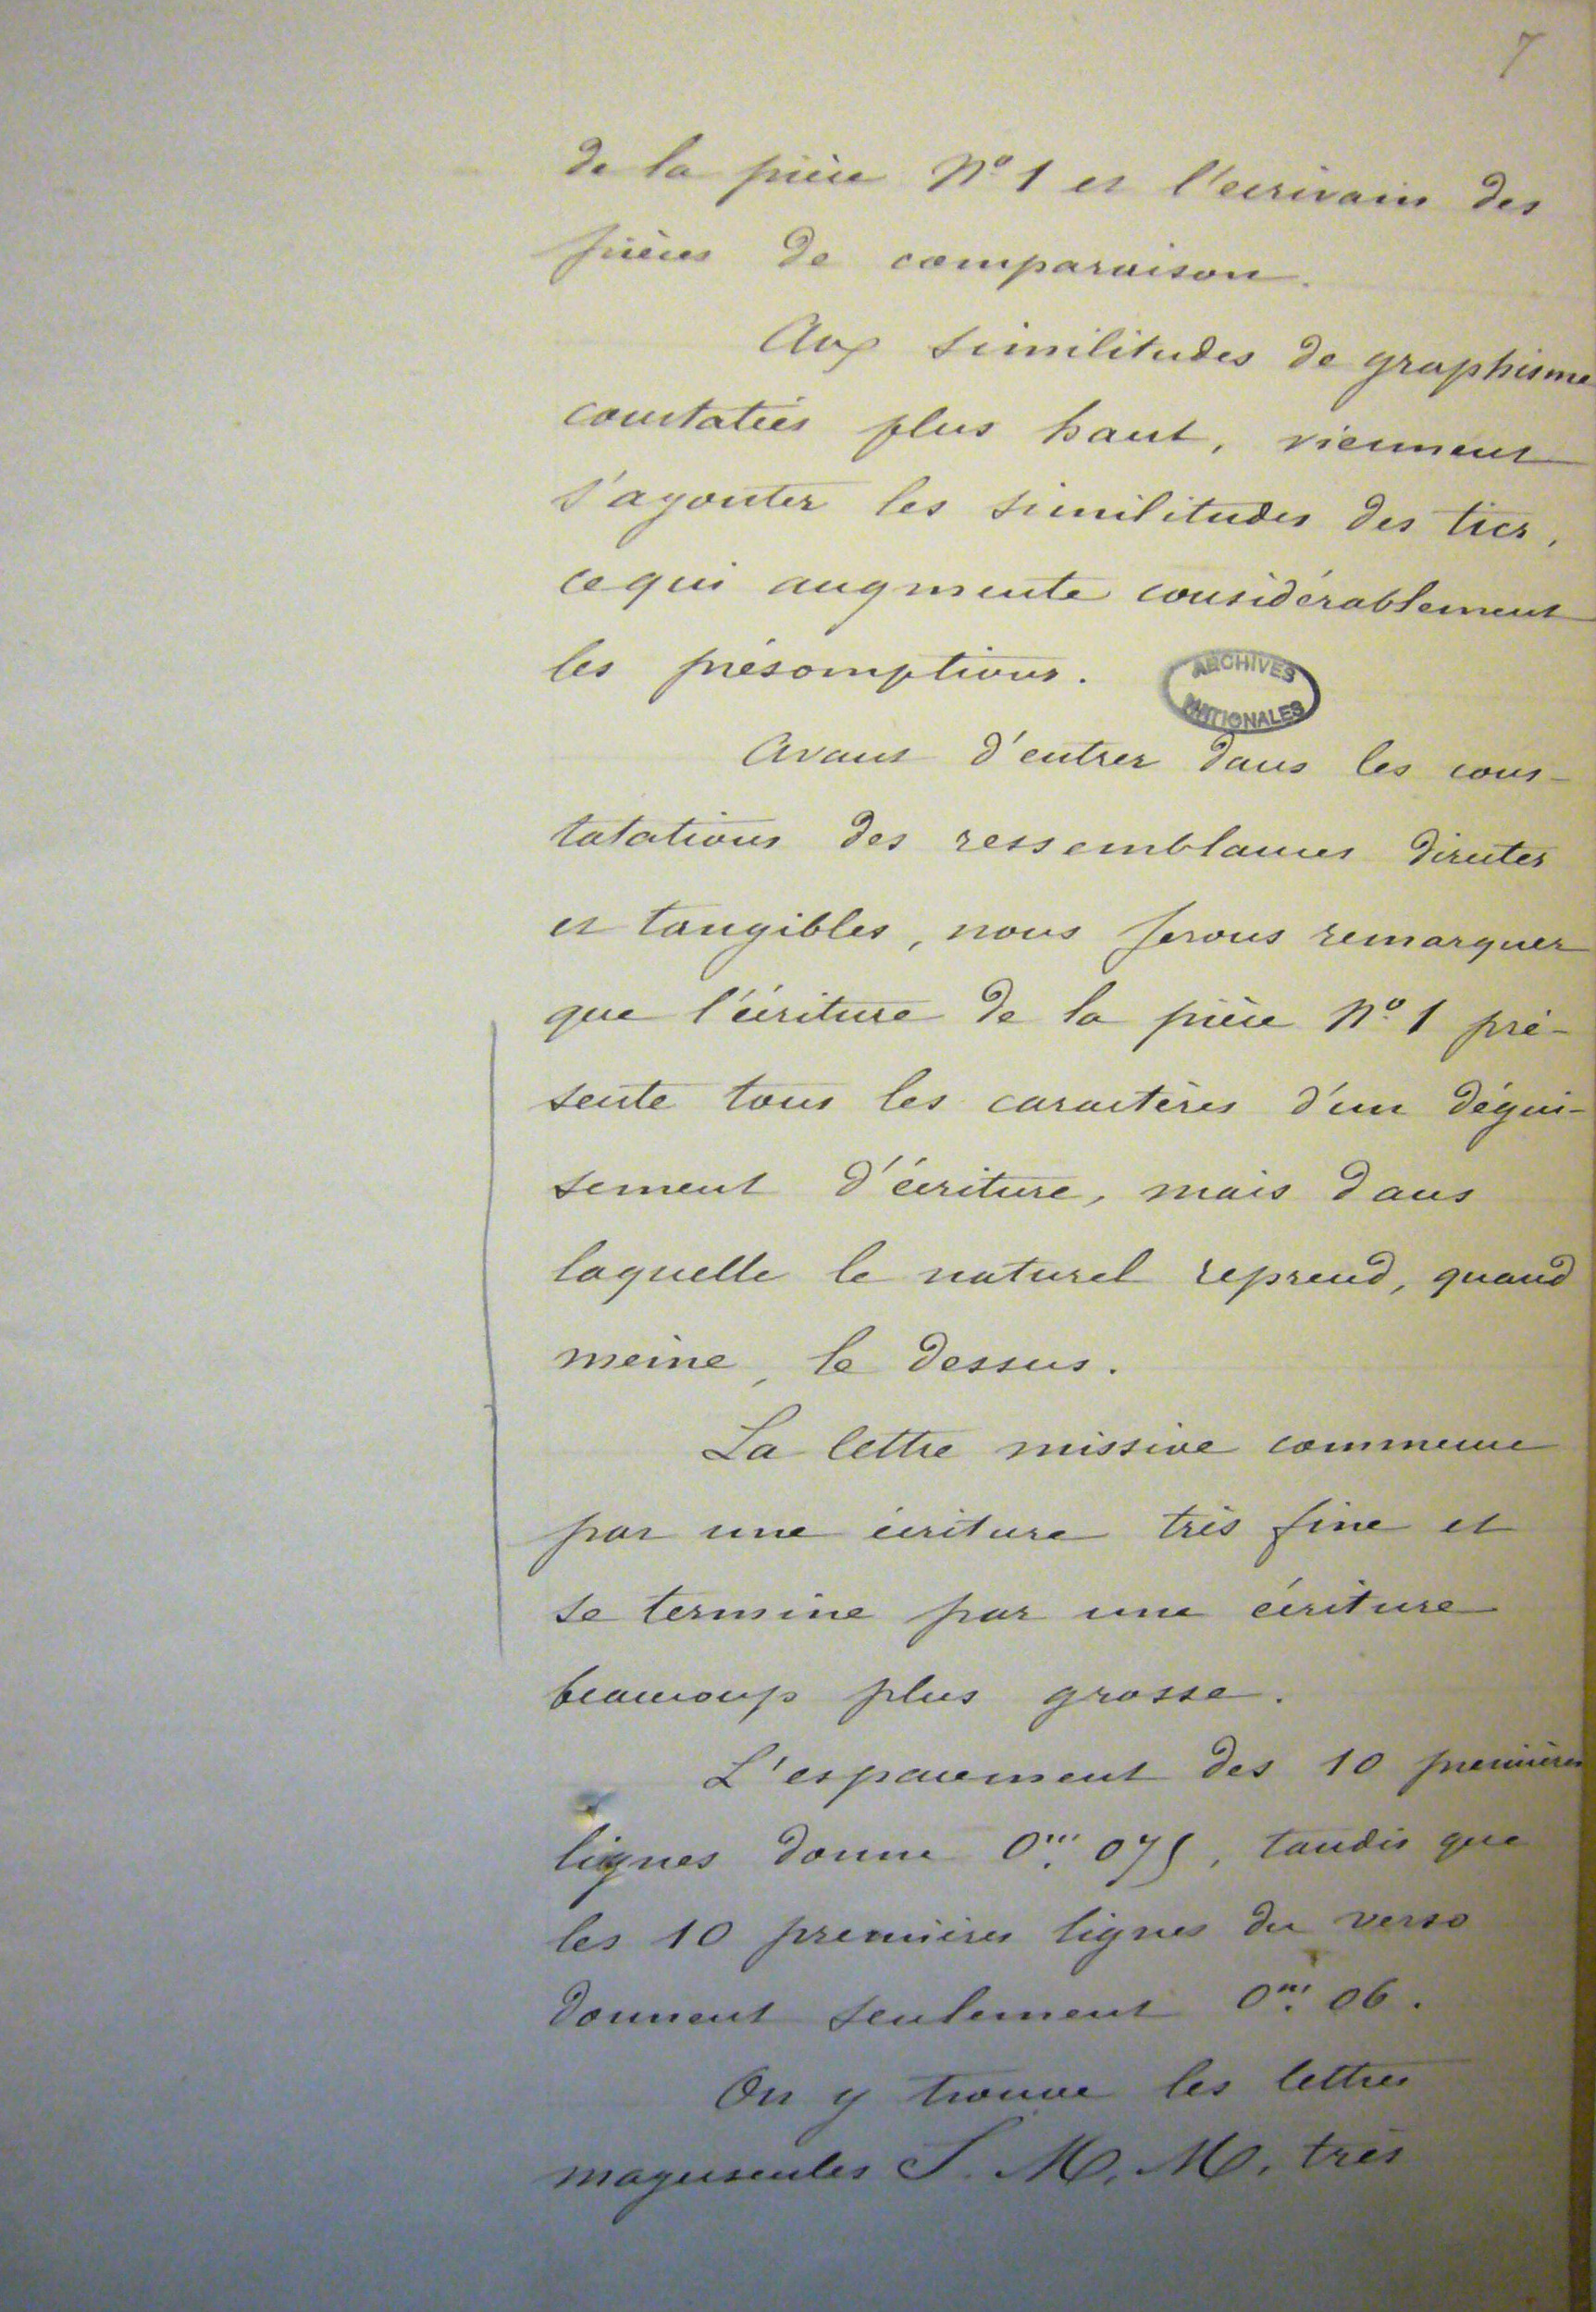 7
de la pièce N° 1 et l'écrivain des
pièces de comparaison.
Aux similitudes de graphisme
constatées plus haut, viennent
s'ajouter les similitudes des tics,
ce qui augmente considérablement
les présomptions.
ARCHIVES
NATIONALES
Avant d'entrer dans les cons-
tatations des ressemblances directes
et tangibles, nous ferons remarquer
que l'écriture de la pièce N° 1 pré-
sente tous les caractères d'un dégui-
sement d'écriture, mais dans
laquelle le naturel reprend, quand
même, le dessus.
La lettre missive commence
par une écriture très fine et
se termine par une écriture
beaucoup plus grosse.
L'espacement des 10 premières
lignes donne 0m. 075, tandis que
les 10 premières lignes du verso
donnent seulement 0m. 06.
On y trouve les lettres
majuscules S. M. M. très